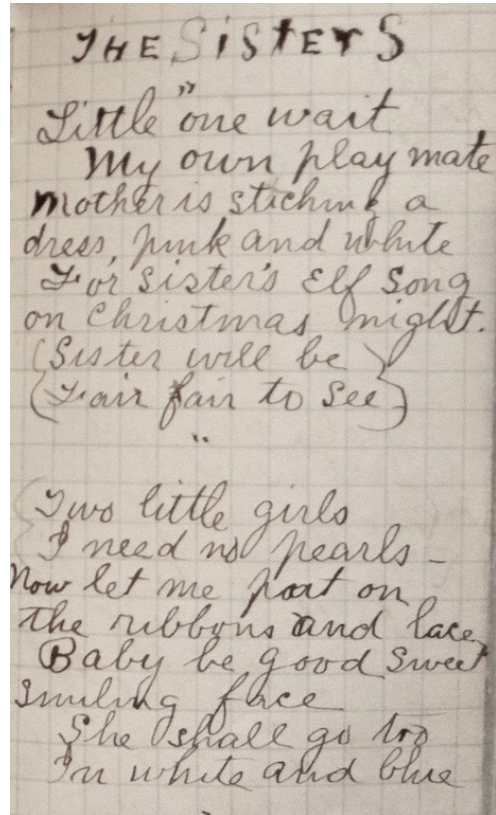 THE SISTERS
"
Little one wait
My own play mate
Mother is stiching a
dress, pink and white
For Sister's Elf Song
on Christmas night.
(Sister will be)
(Fair fair to see)
"
Two little girls
I need no pearls -
Now let me part on
the ribbons and lace,
Baby be good Sweet
smiling face
She shall go too
In white and blue